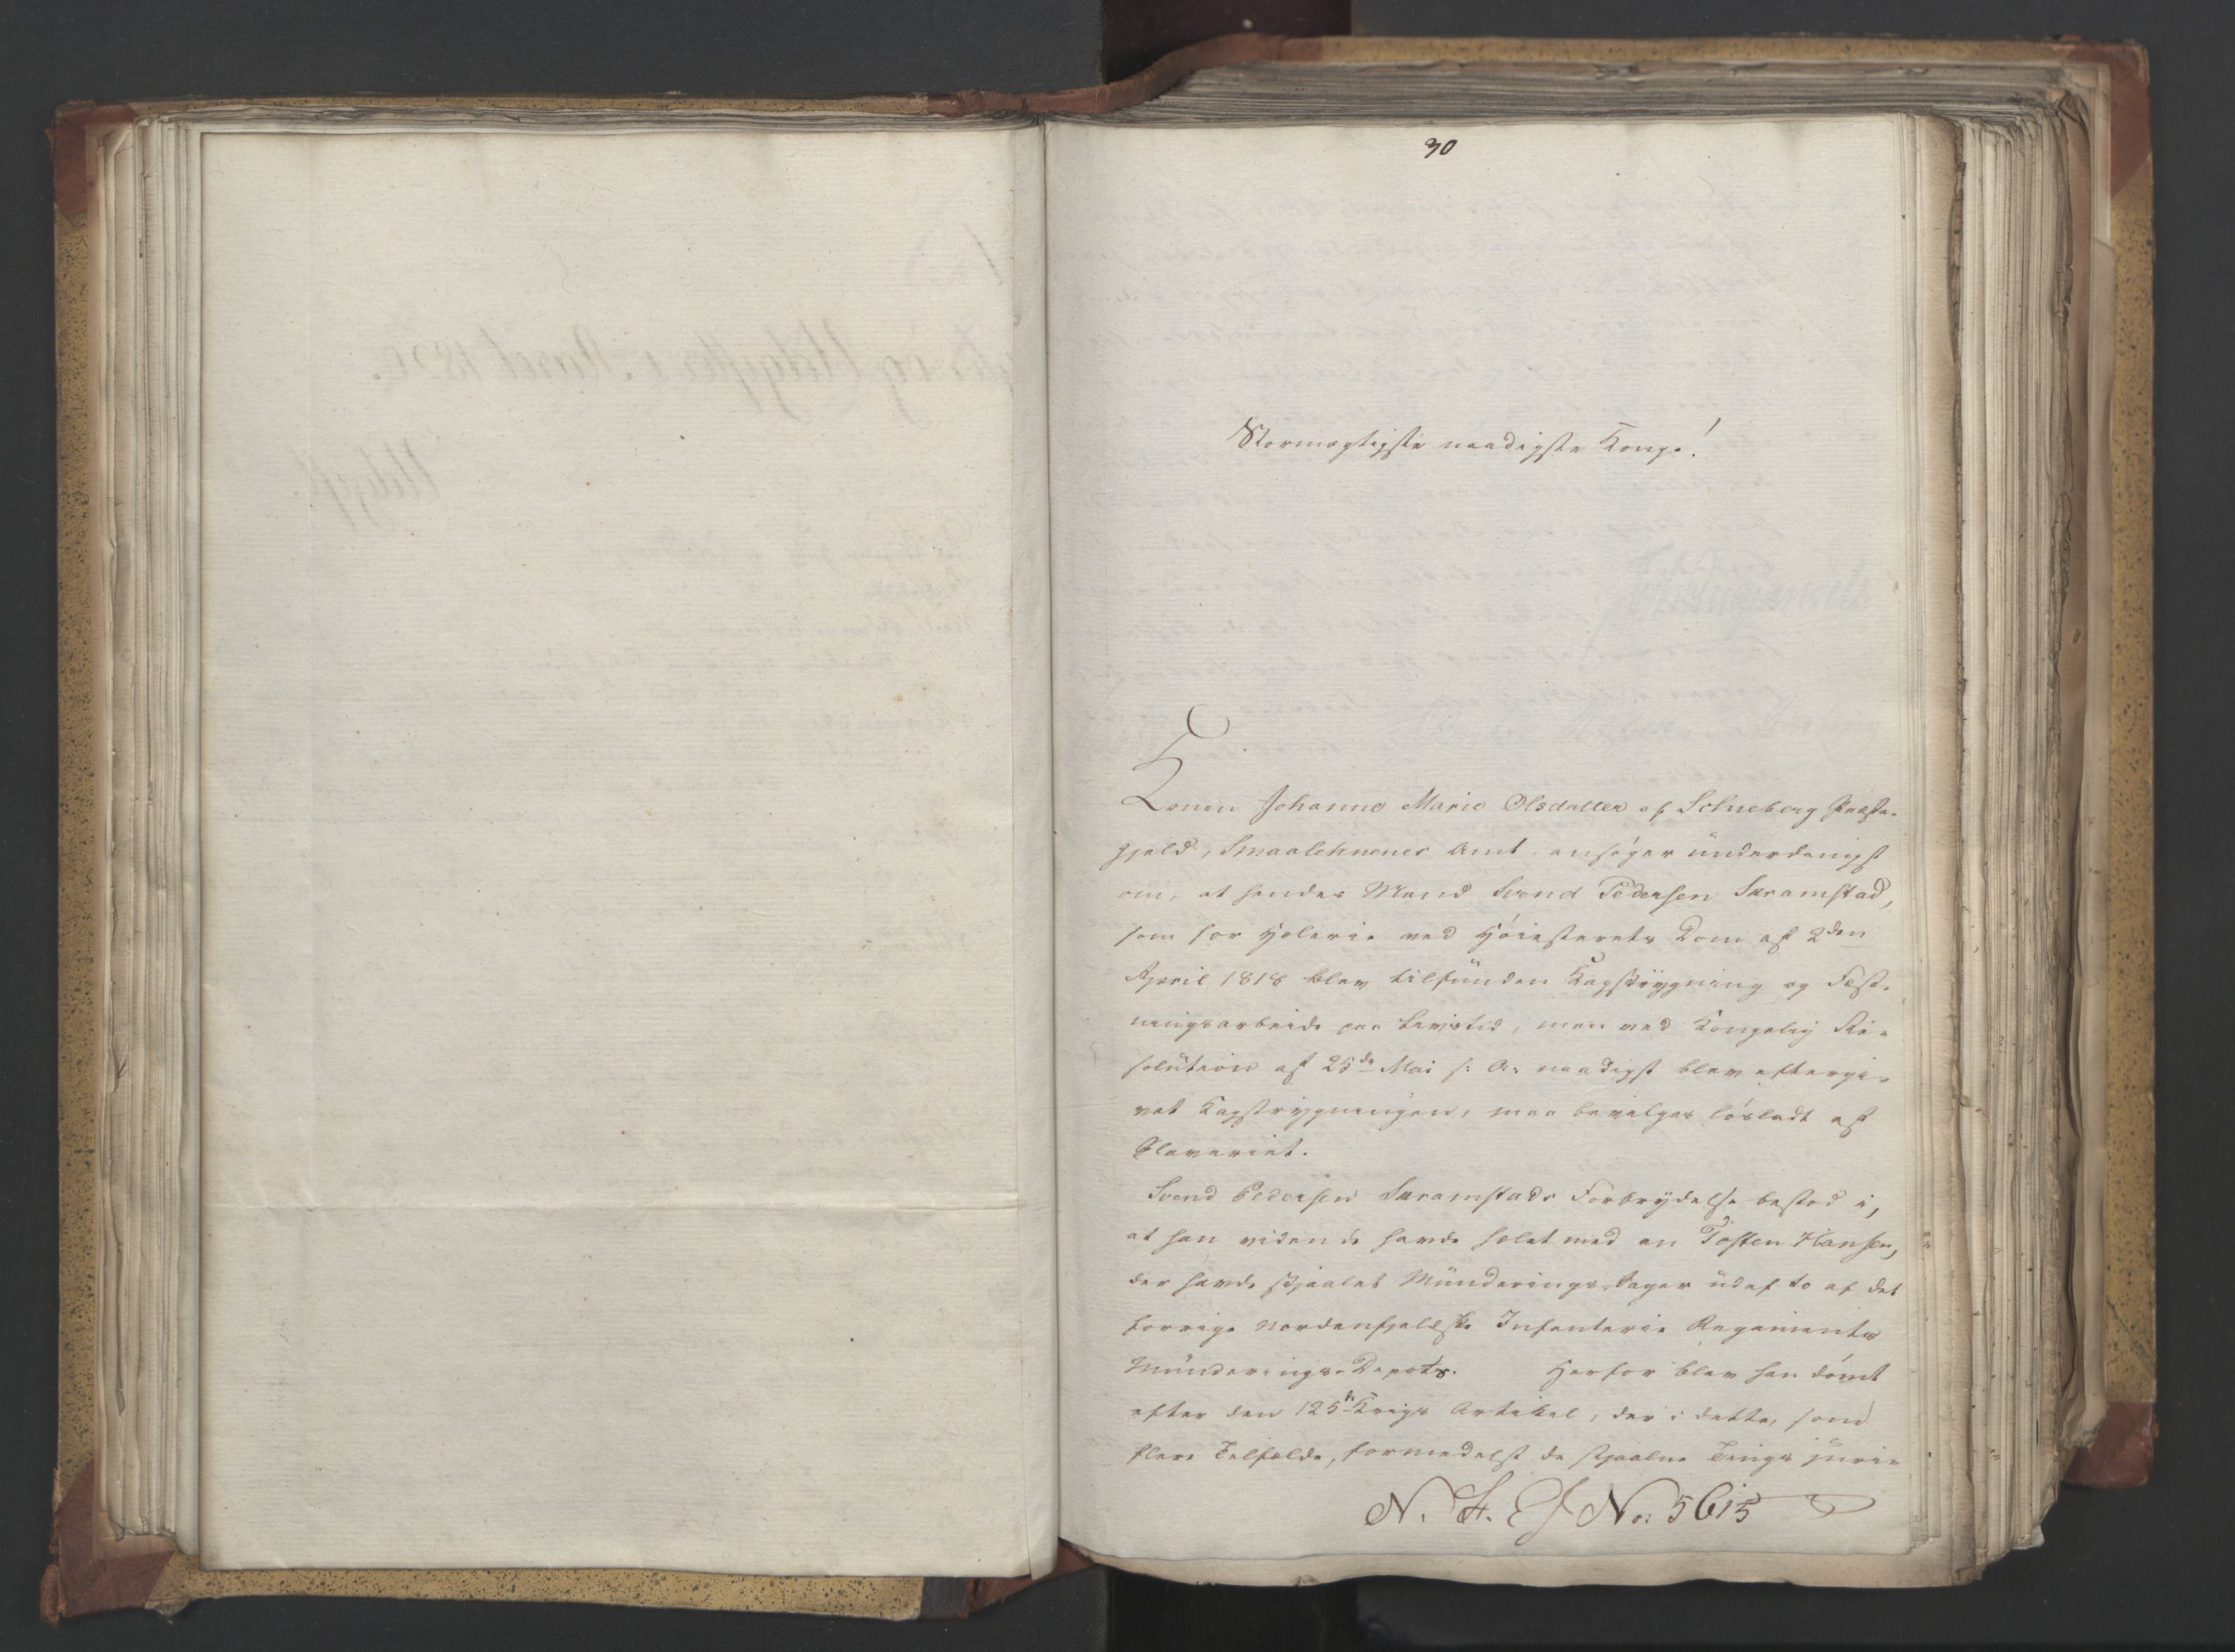 30
Stormægtigste naadigste Konge!
Konen Johanne Marie Olsdatter af Schieberg Præste-
gjeld, Smaalehnenes Amt ansøger ünderdanigst
om, at hendes Mand Svend Pedersen Skramstad,
som for Hæleri ved Høiesterets Dom af 2den
April 1818 blev tilfünden Kagstrygning og Fæst-
ningsarbeide paa Livstid, men ved Kongelig Re-
solütion af 25de Mai s: A: naadigst blev eftergi-
vet Kagstrygningen, maa bevilges løsladt af
Slaveriet.
Svend Pedersen Skramstads Forbrydelse bestod i,
at han vidende havde hælet med en Tosten Hansen,
der havde stjaalet Münderings-Sager üdaf to af det
forrige Nordenfjeldske Infanterie Regiments
Münderings-Depots. Herfor blev han dømt
efter den 125de Krigs Artikel, der i dette, som
flere Tilfælde, formedelst de stjaalne Tings
N. No: 5615